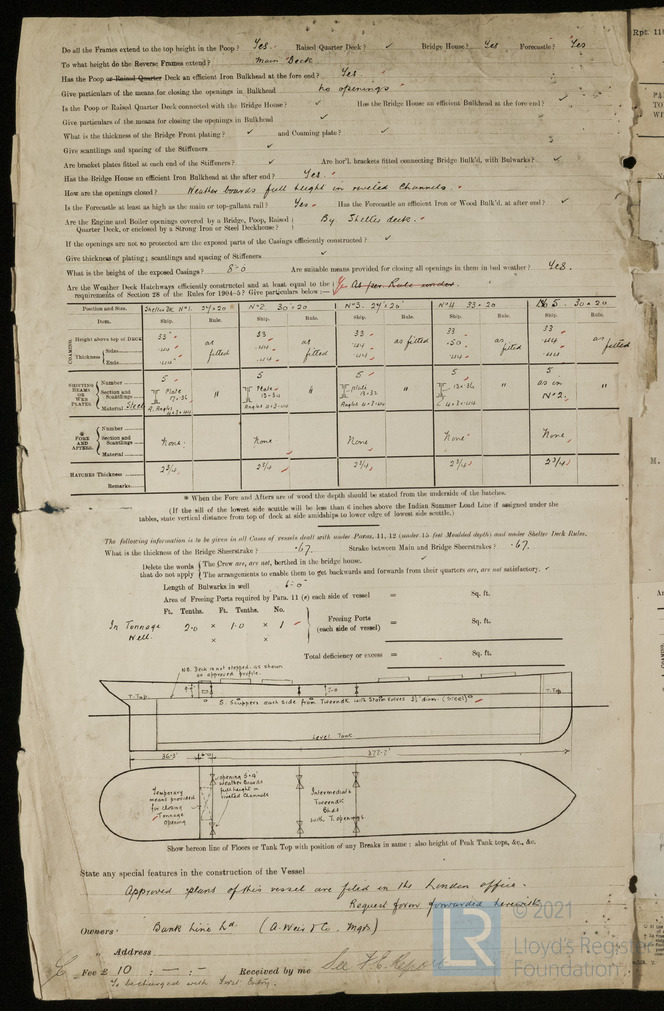 Do all the Frames extend to the top height in the Poop? Yes. Raised Quarter Deck? ✓ Bridge House? Yes Forecastle? Yes
To what height do the Reverse Frames extend? Main Deck
Has the Poop or Raised Quarter Deck an efficient Iron Bulkhead at the fore end? Yes.
Give particulars of the means for closing the openings in Bulkhead no openings
Is the Poop or Raised Quarter Deck connected with the Bridge House? ✓ Has the Bridge House an efficient Bulkhead at the fore end? ✓
Give particulars of the means for closing the openings in Bulkhead ✓
What is the thickness of the Bridge Front plating? ✓ and Coaming plate? ✓
Give scantlings and spacing of the Stiffeners ✓
Are bracket plates fitted at each end of the Stiffeners? ✓ Are hor'l. brackets fitted connecting Bridge Bulk'd, with Bulwarks? ✓
Has the Bridge House an efficient Iron Bulkhead at the after end? Yes.
How are the openings closed? Weather boards full height in riveted Channels.
Is the Forecastle at least as high as the main or top-gallant rail? Yes Has the Forecastle an efficient Iron or Wood Bulk'd. at after end? ✓
Are the Engine and Boiler openings covered by a Bridge, Poop, Raised
Quarter Deck, or enclosed by a Strong Iron or Steel Deckhouse? By Shelter deck.
If the openings are not so protected are the exposed parts of the Casings efficiently constructed? ✓
Give thickness of plating; scantlings and spacing of Stiffeners ✓
What is the height of the exposed Casings? 8-0 Are suitable means provided for closing all openings in them in bad weather? Yes.
Are the Weather Deck Hatchways efficiently constructed and at least equal to the
requirements of Section 28 of the Rules for 1904-5? Give particulars below:— As per Rule
Position and Size. Shelter Dk No 1. 24'×20 No 2. 30×20 No 3. 24×20 No 4 33×20 No 5. 30×20
Item. Ship. Rule. Ship. Rule. Ship. Rule. Ship. Rule. Ship. Rule.
COAMING Height above top of DECK 33 33 33 33 33
Thickness Sides .44 as fitted .44 as fitted .44 as fitted .50 as fitted .44 as fitted
Ends .44 .44 .44 .44 .44
SHIFTING BEAMS OR WEB PLATES Number 5 5 5 5 5
Section and Scantlings Plate 17×.36 " Plate " Plate " 13×.34 " as in No 2.
Material Steel Angles 4×3×.44 Angles 4×3×.44 Angles 4×3×.44 4×3×.44
* FORE AND AFTERS. Number
Section and Scantlings None. None. None None None
Material
HATCHES Thickness 2 3/4 2 3/4 2 3/4 2 3/4 2 3/4
Remarks
* When the Fore and Afters are of wood the depth should be stated from the underside of the hatches.
(If the sill of the lowest side scuttle will be less than 6 inches above the Indian Summer Load Line if assigned under the
tables, state vertical distance from top of deck at side amidships to lower edge of lowest side scuttle.)
The following information is to be given in all Cases of vessels dealt with under Paras. 11, 12 (under 15 feet Moulded depth) and under Shelter Deck Rules.
What is the thickness of the Bridge Sheerstrake? .67. Strake between Main and Bridge Sheerstrakes? .67.
Delete the words The Crew are, are not, berthed in the bridge house.
that do not apply The arrangements to enable them to get backwards and forwards from their quarters are, are not satisfactory.
Length of Bulwarks in well 6-0
Area of Freeing Ports required by Para. 11 (e) each side of vessel = Sq. ft.
Ft. Tenths. Ft. Tenths. No.
In Tonnage Well. 2.0 × 1.0 × 1 Freeing Ports (each side of vessel) = Sq. ft.
× ×
Total deficiency or excess = Sq. ft.
N.B. Deck is not stepped. as shown
on approved profile.
T. Top.
5. Scuppers each side from Tweendk with Storm valves 3½ diam. (Steel)
T. Top
Level Tank
36-3' 6-0 377-2'
Temporary means provided for closing Tonnage Opening
opening 5×4' Weather Boards full height in riveted Channels
Intermediate Tweendk Bhds with T. openings
Show hereon line of Floors or Tank Top with position of any Breaks in same: also height of Peak Tank tops, &c., &c.
State any special features in the construction of the Vessel
Approved plans of this vessel are filed in the London office.
Request form forwarded herewith
Owners. Bank Line Ld. (A. Weir & Co. Mgrs)
" Address
Fee £ 10 : — : — Received by me See F.E. Report
To be charged with First Entry.
LR
© 2021
Lloyd's Register
Foundation
Rpt. 11